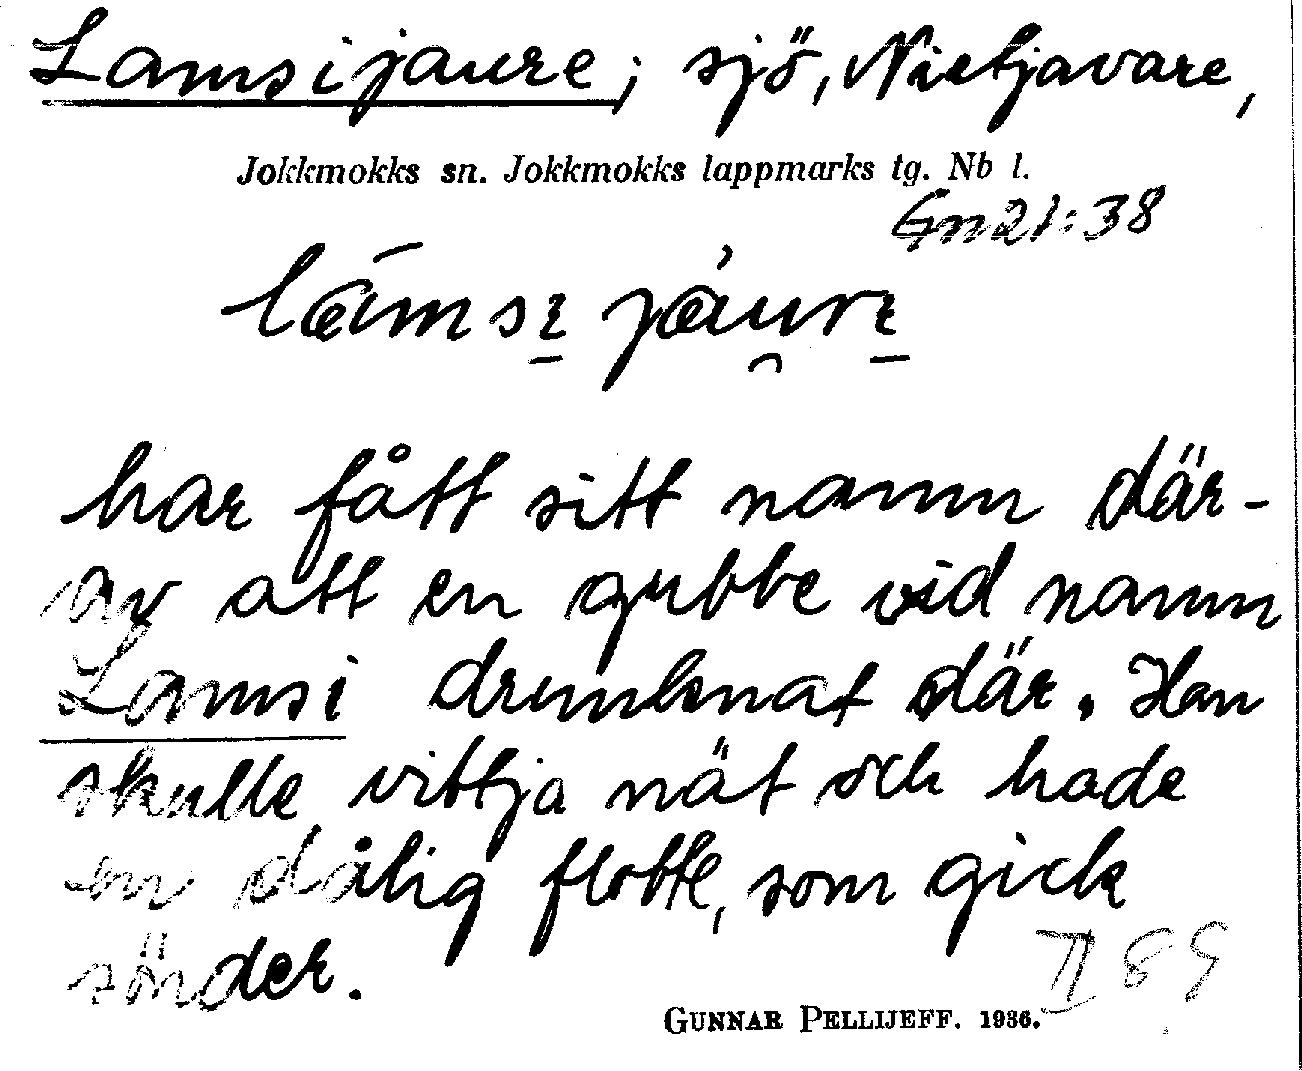 Lamsijaure; sjö, Nietjavare,
Jokkmokks sn. Jokkmokks lappmarks tg. Nb l.
Gn21:38
har fått sitt namn där-
av att en gubbe vid namn
Lamsi drunknat där. Han
skulle vittja nät och hade
en dålig flotte, som gick
sönder.
II 89
GUNNAR PELLIJEFF. 1936.